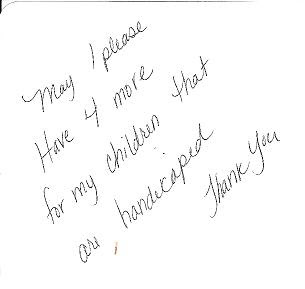 May I please
Have 4 more
for my children that
are handicaped
Thank You